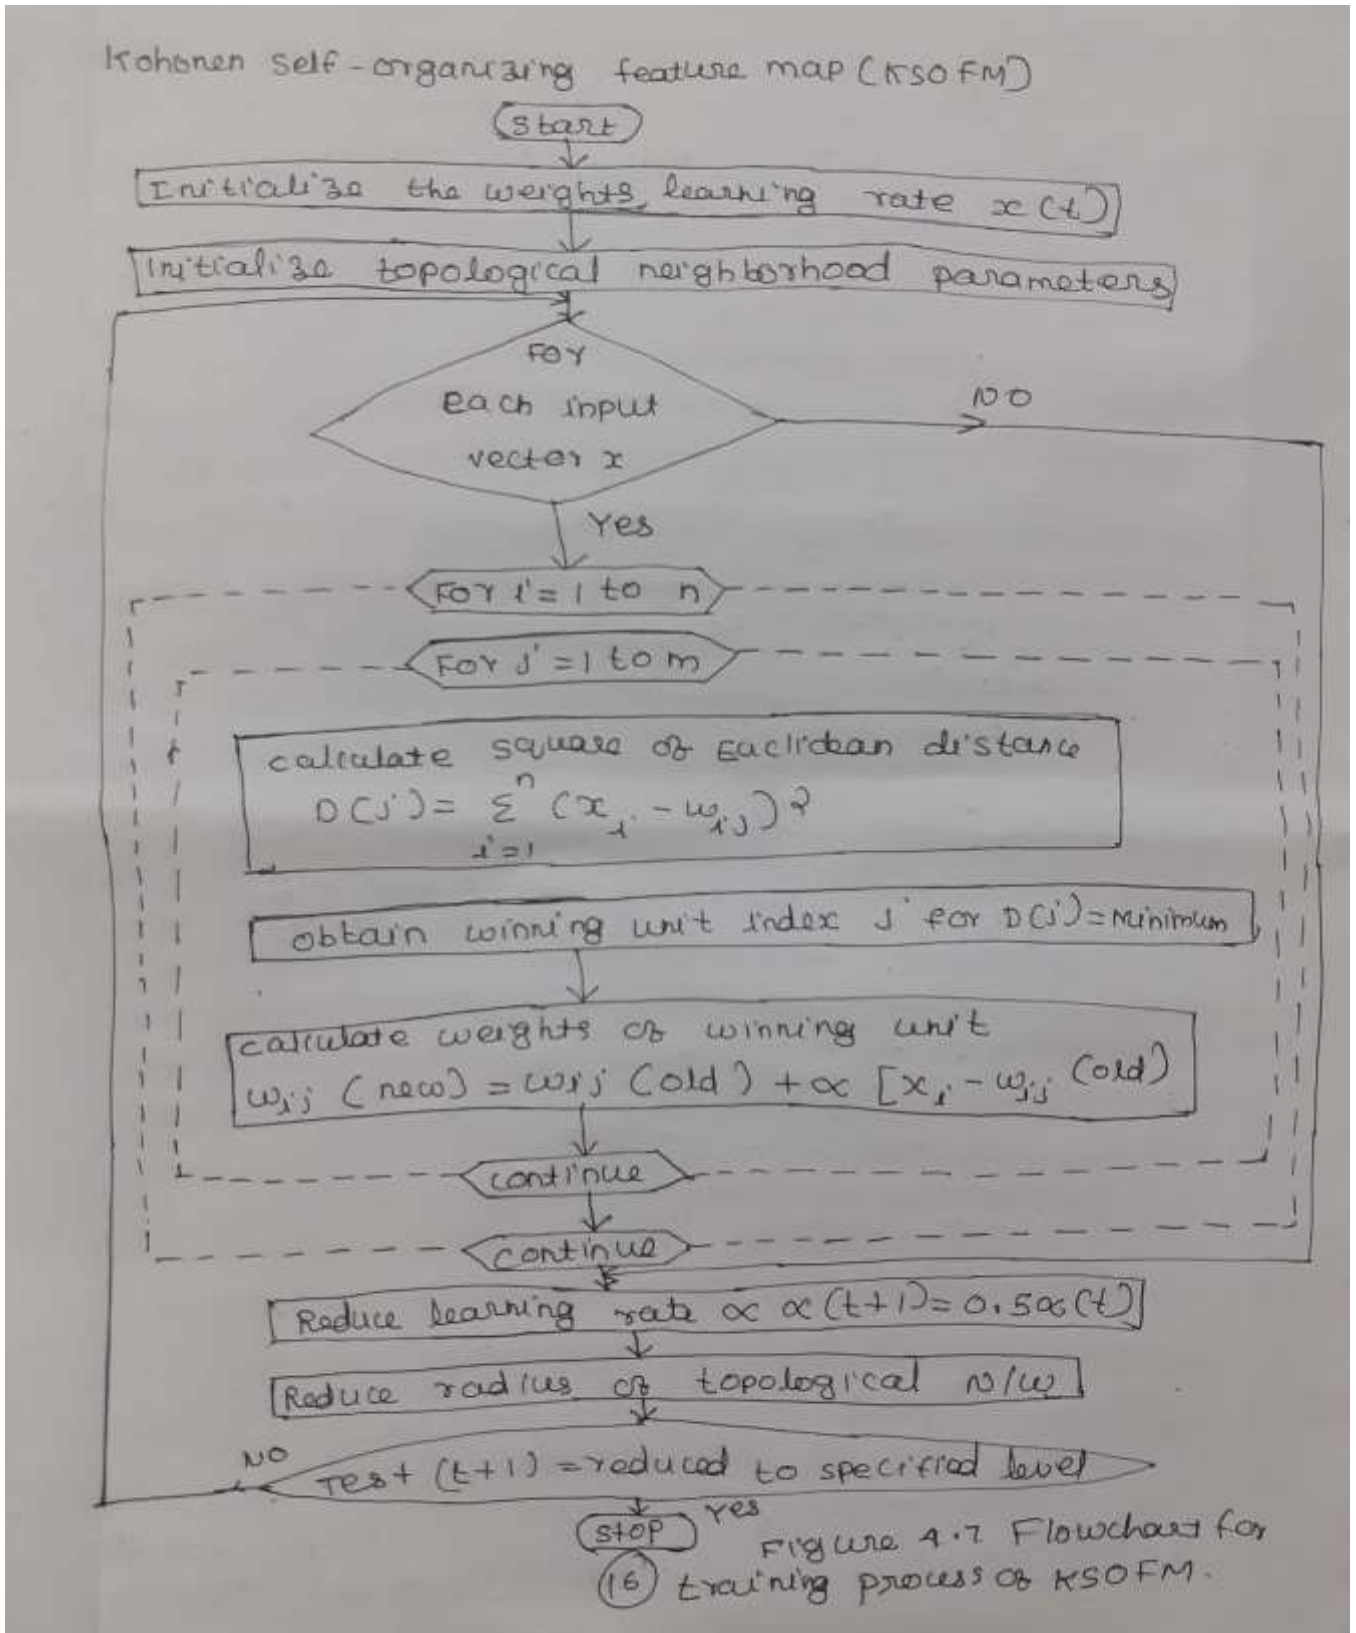 Kohonen self-organizing feature map (KSOFM)
Start
Initialize the weights, learning rate x(t)
Initialize topological neighborhood parameters
For
each input
vector x
NO
Yes
For i=1 to n
For j=1 to m
calculate square of Euclidean distance
D(j) = Σ (x_i - w_ij)2
n
i=1
obtain winning unit index j for D(j)=Minimum
calculate weights of winning unit
w_ij (new) = w_ij (old) + ∝ [x_i - w_ij (old)
continue
continue
Reduce learning rate ∝ ∝(t+1)=0.5∝(t)
Reduce radius of topological N/w
NO
Test (t+1) = reduced to specified level
Yes
Stop
Figure 4.7 Flowchart for
16 training process of KSOFM.